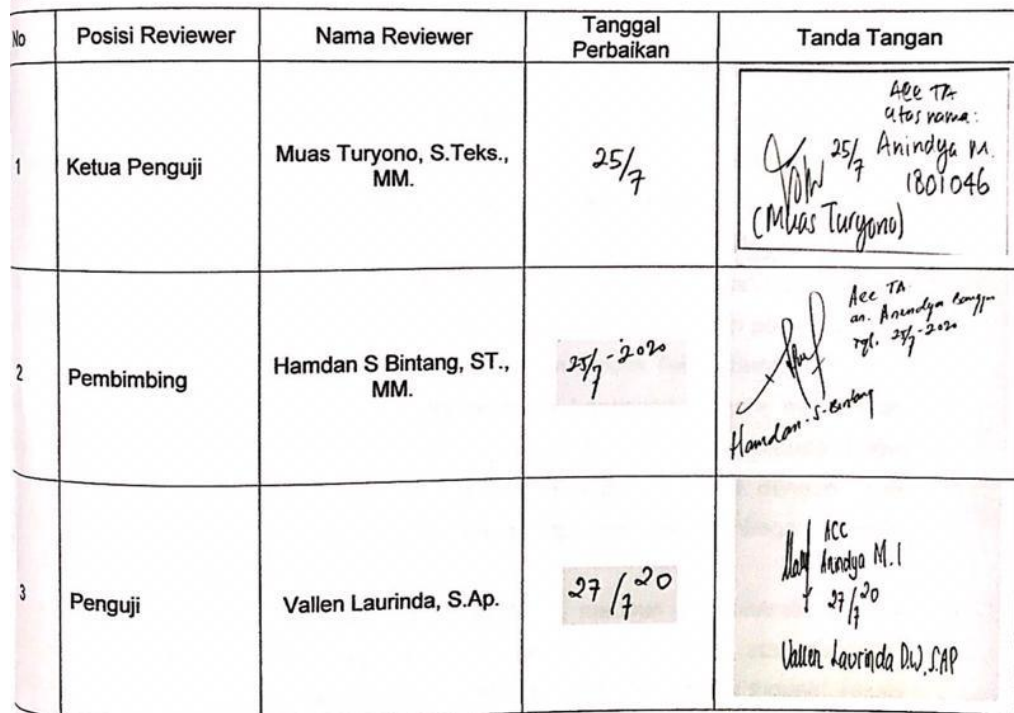 No Posisi Reviewer Nama Reviewer Tanggal Perbaikan Tanda Tangan
1 Ketua Penguji Muas Turyono, S.Teks., MM. 25/7
Acc TA
atas nama:
25/7 Anindya M.
1801046
(Muas Turyono)
2 Pembimbing Hamdan S Bintang, ST., MM. 25/7-2020
Acc TA
an. Anindya
tgl. 25/7-2020
Hamdan-S-Bintang
3 Penguji Vallen Laurinda, S.Ap. 27/7 20
ACC
Anindya M.I
27/7 20
Vallen Laurinda D.W, S.AP